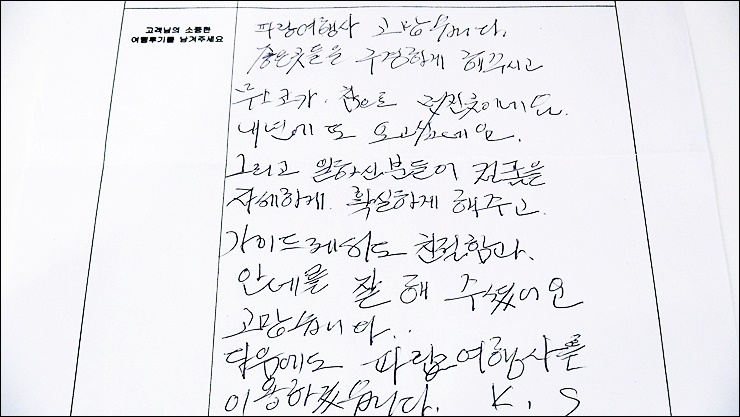 고객님의 소중한
여행후기를 남겨주세요
파랑여행사 고맙습니다.
좋은곳들을 구경하게 해주시고
무스코가. 참으로 멋진곳이네요.
내년에 또 오고싶네요.
그리고 일하신분들이 정품을
자세하게. 확실하게 해주고.
가이드께서도 친절함과.
안네를 잘 해 주셨어요
고맙습니다..
다음에도 파랑여행사를
이용하겠습니다. K.S